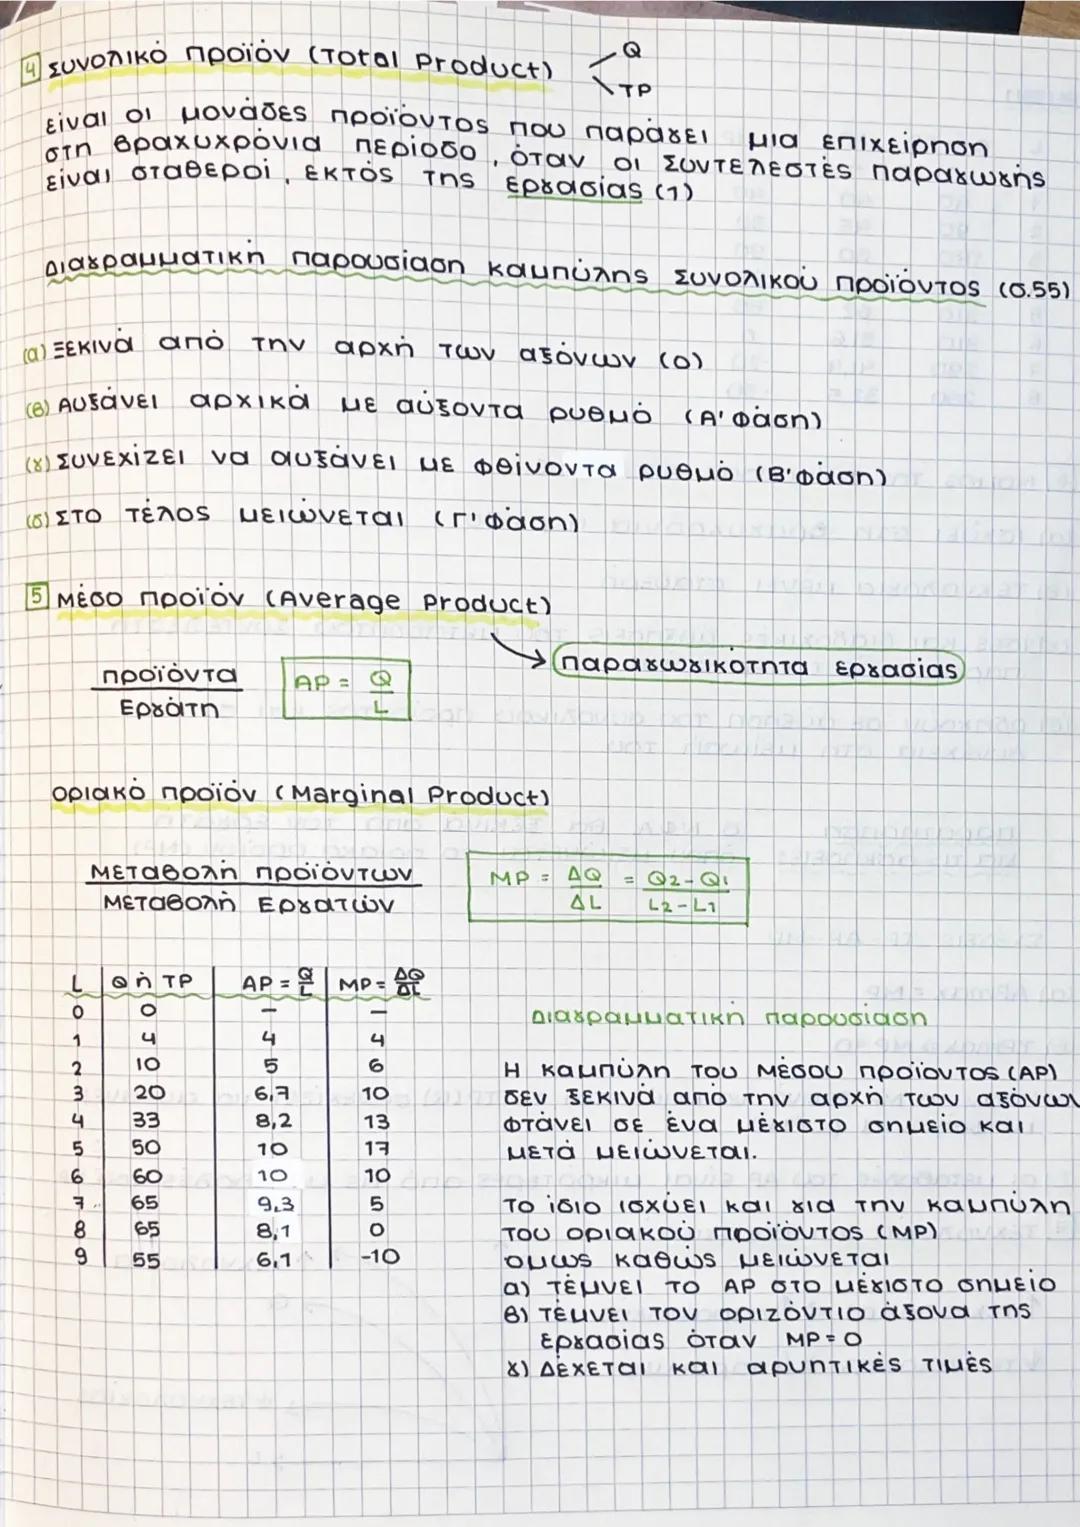 4 Συνολικό προϊόν (Total Product) Q
TP
είναι οι μονάδες προϊόντος που παράγει μια επιχείρηση
στη βραχυχρόνια περίοδο, όταν οι συντελεστές παραγωγής
είναι σταθεροί, εκτός της εργασίας (1)
Διαγραμματική παρουσίαση καμπύλης συνολικού προϊόντος (σ.55)
(α) Ξεκινά από την αρχή των αξόνων (0)
(β) Αυξάνει αρχικά με αύξοντα ρυθμό (Α' φάση)
(γ) Συνεχίζει να αυξάνει με φθίνοντα ρυθμό (Β' φάση)
(δ) Στο τέλος μειώνεται (Γ' φάση)
5 Μέσο προϊόν (Average Product)
παραγωγικότητα εργασίας
προϊόντα
Εργάτη
AP = Q
L
οριακό προϊόν (Marginal Product)
Μεταβολή προϊόντων
Μεταβολή Εργατών
MP = ΔQ = Q2-Q1
ΔL L2-L1
L Q ή TP AP = Q/L MP = ΔQ/ΔL
0 0 - -
1 4 4 4
2 10 5 6
3 20 6,7 10
4 33 8,2 13
5 50 10 17
6 60 10 10
7 65 9,3 5
8 65 8,1 0
9 55 6,1 -10
Διαγραμματική παρουσίαση
Η καμπύλη του Μέσου προϊόντος (AP)
δεν ξεκινά από την αρχή των αξόνων
φτάνει σε ένα μέγιστο σημείο και
μετά μειώνεται.
Το ίδιο ισχύει και για την καμπύλη
του οριακού προϊόντος (MP)
όμως καθώς μειώνεται
α) τέμνει το AP στο μέγιστο σημείο
β) τέμνει τον οριζόντιο άξονα της
εργασίας όταν MP=0
γ) Δέχεται και αρνητικές τιμές